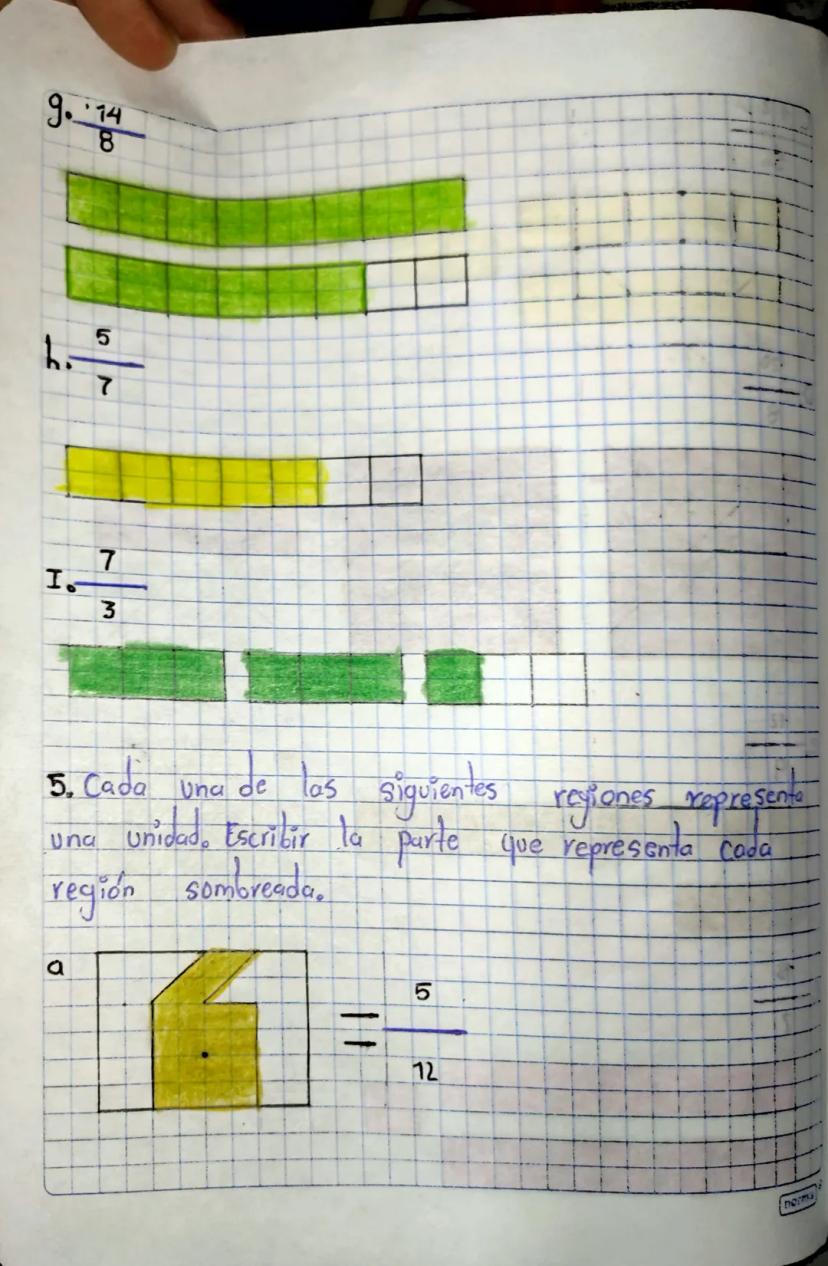 g. 14
8
h. 5
7
I. 7
3
5. Cada una de las siguientes regiones representa
una unidad. Escribir la parte que representa cada
región sombreada.
a = 5
12
norma